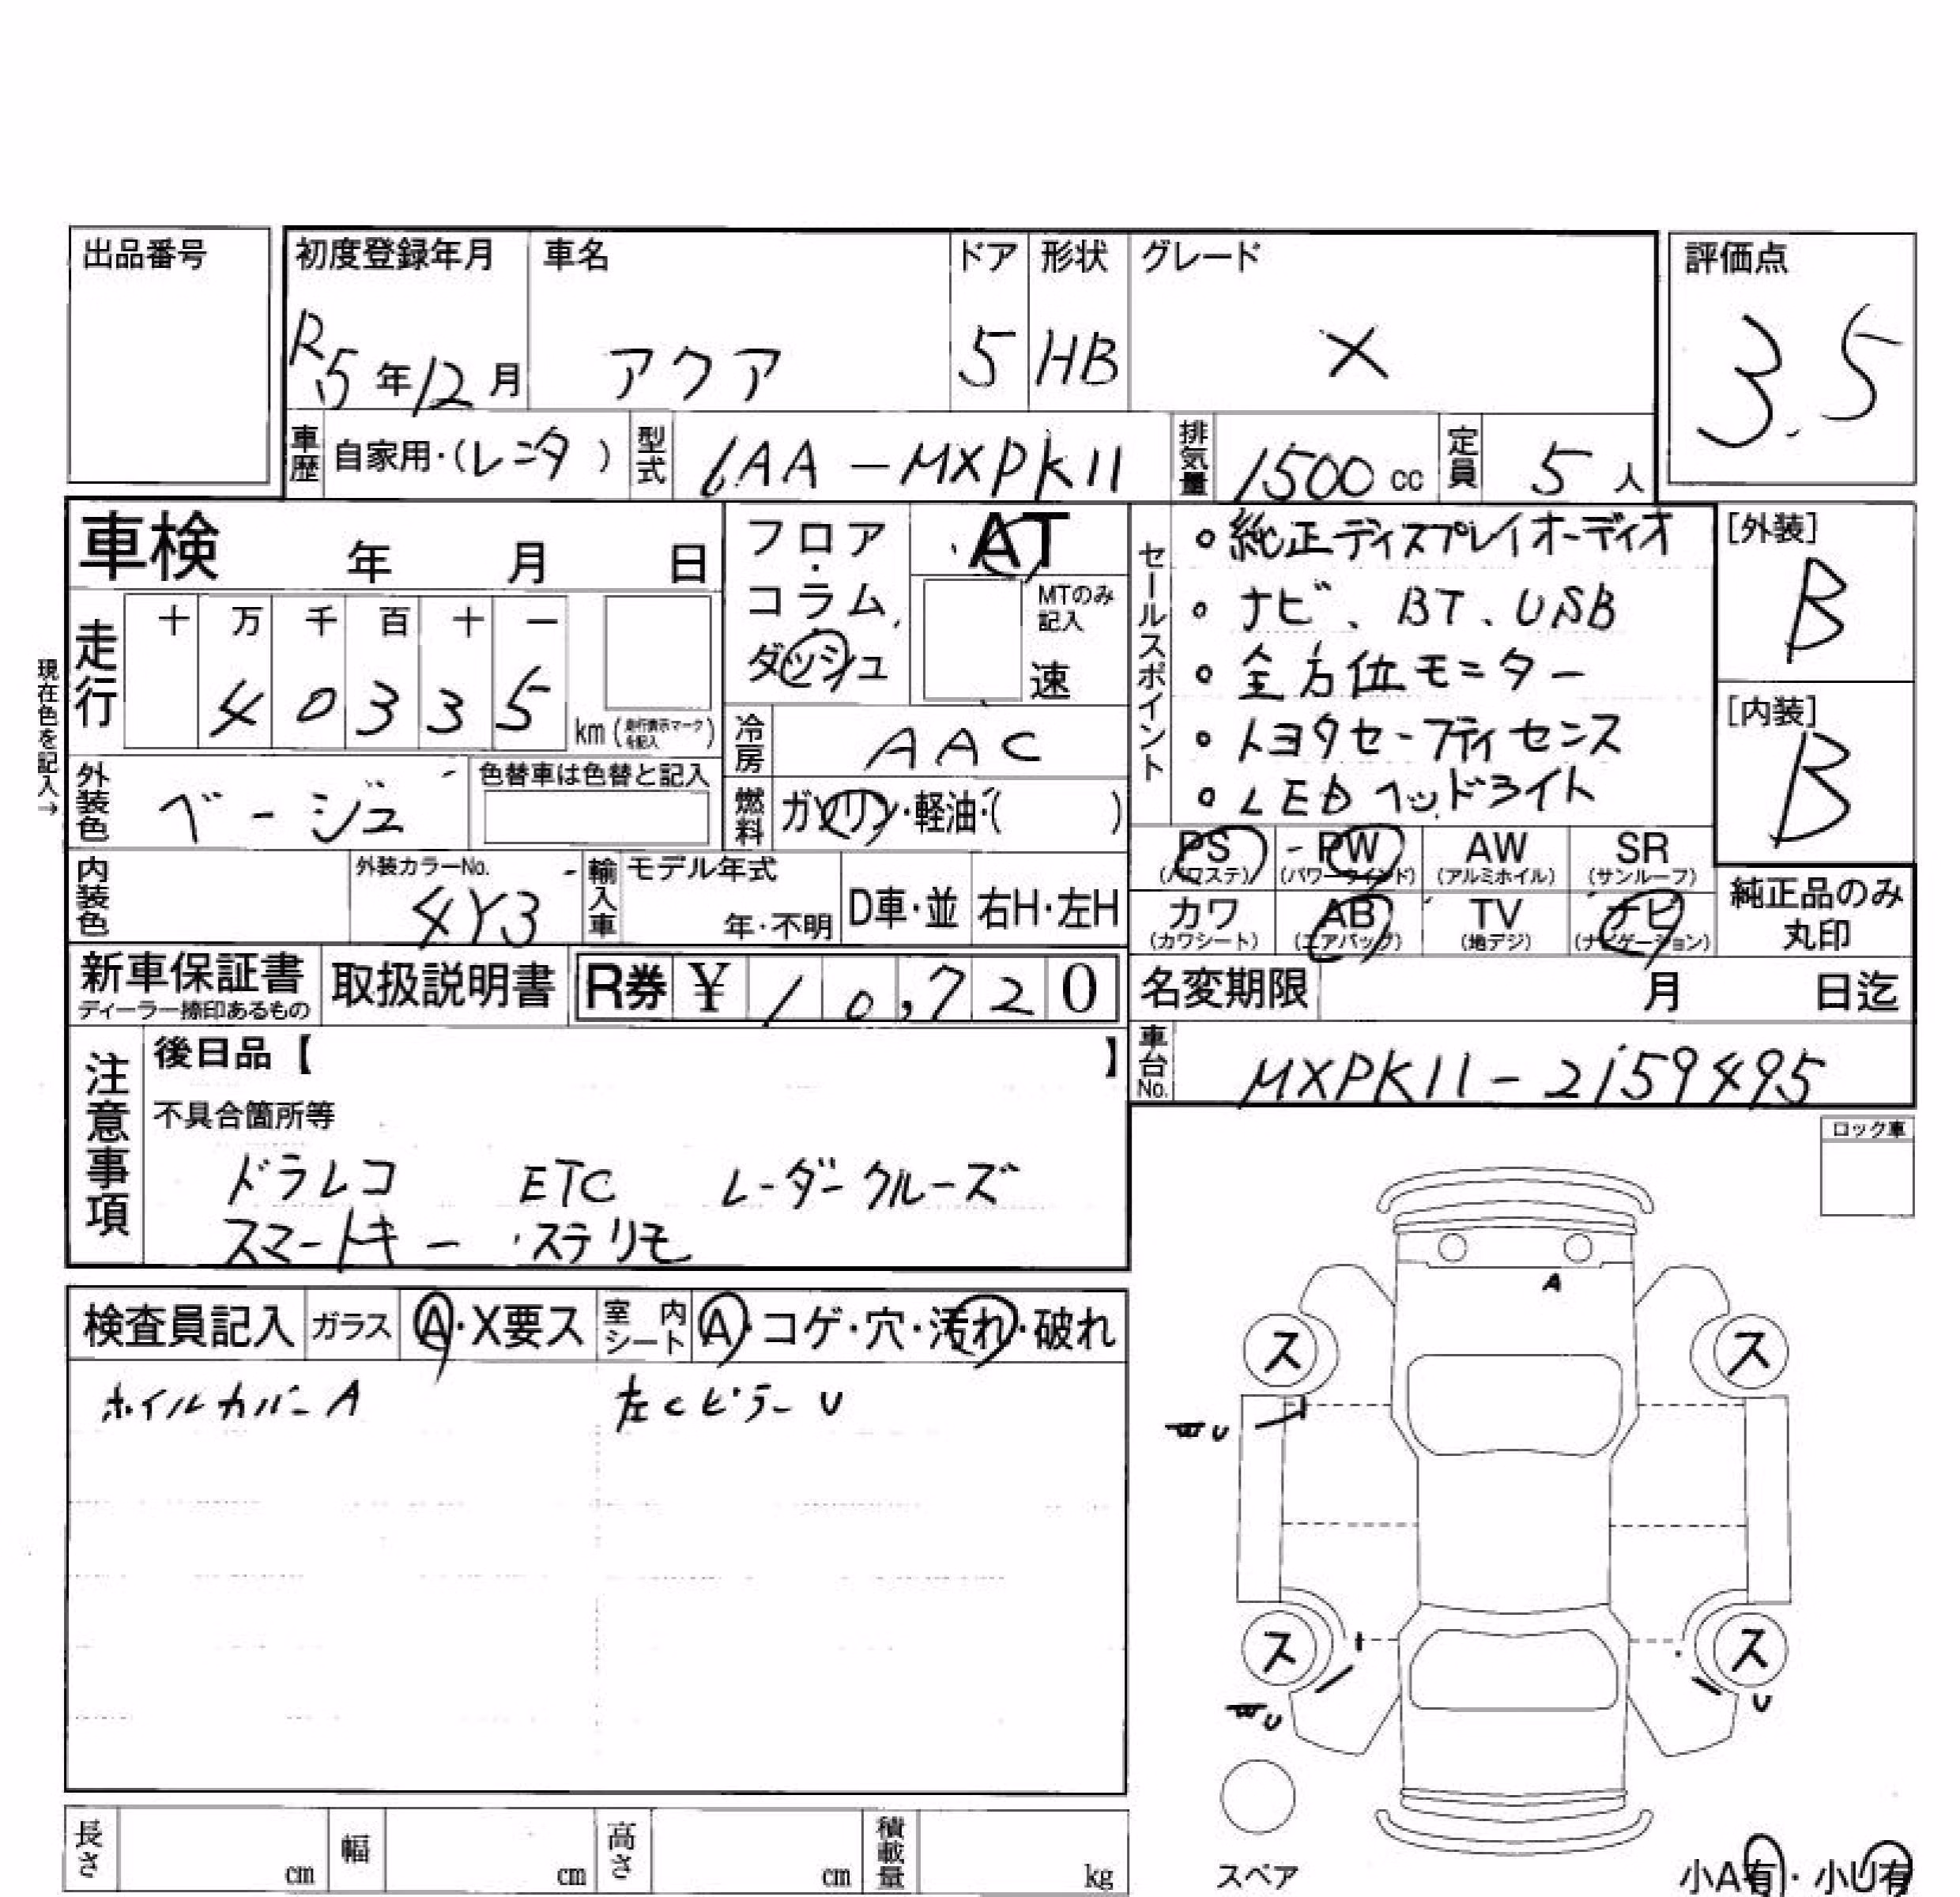 出品番号
初度登録年月 車名 ドア 形状 グレード 評価点
R5年12月 アクア 5 HB X 3.5
車歴 自家用・(レンタ) 型式 6AA-MXPK11 排気量 1500cc 定員 5人
車検 年 月 日
フロア・コラム ダッシュ AT
MTのみ記入 速
現在色を記入→
走行 十 万 千 百 十 一
4 0 3 3 5 km(走行表示マークを記入)
冷房 AAC
外装色 ベージュ 色替車は色替と記入
燃料 ガソリン・軽油・( )
内装色 外装カラーNo. 4Y3 輸入車 モデル年式 年・不明 D車・並 右H・左H
セールスポイント
・純正ディスプレイオーディオ
・ナビ、BT、USB
・全方位モニター
・トヨタセーフティセンス
・LEDヘッドライト
[外装] B
[内装] B
PS(パワステ) PW(パワーウインド) AW(アルミホイル) SR(サンルーフ)
カワ(カワシート) AB(エアバッグ) TV(地デジ) ナビ(ナビゲーション)
純正品のみ丸印
新車保証書 ディーラー捺印あるもの 取扱説明書 R券 ¥10,720
名変期限 月 日迄
車台No. MXPK11-2159495
注意事項
後日品【 】
不具合箇所等
ドラレコ ETC レーダークルーズ
スマートキー ステリモ
検査員記入 ガラス A・X要ス 室内シート A・コゲ・穴・汚れ・破れ
ホイルカバーA 左CピラーU
ロック車
A
ス ス
U
ス ス
U U
スペア
小A有・小U有
長さ cm 幅 cm 高さ cm 積載量 kg